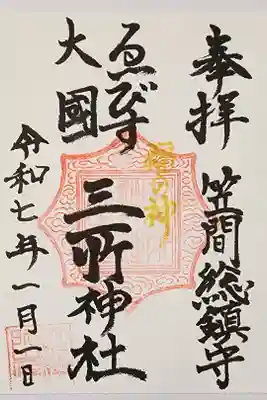 奉拝
笠間総鎮守
福の神
ゑびす
大國
三所神社
令和七年一月一日